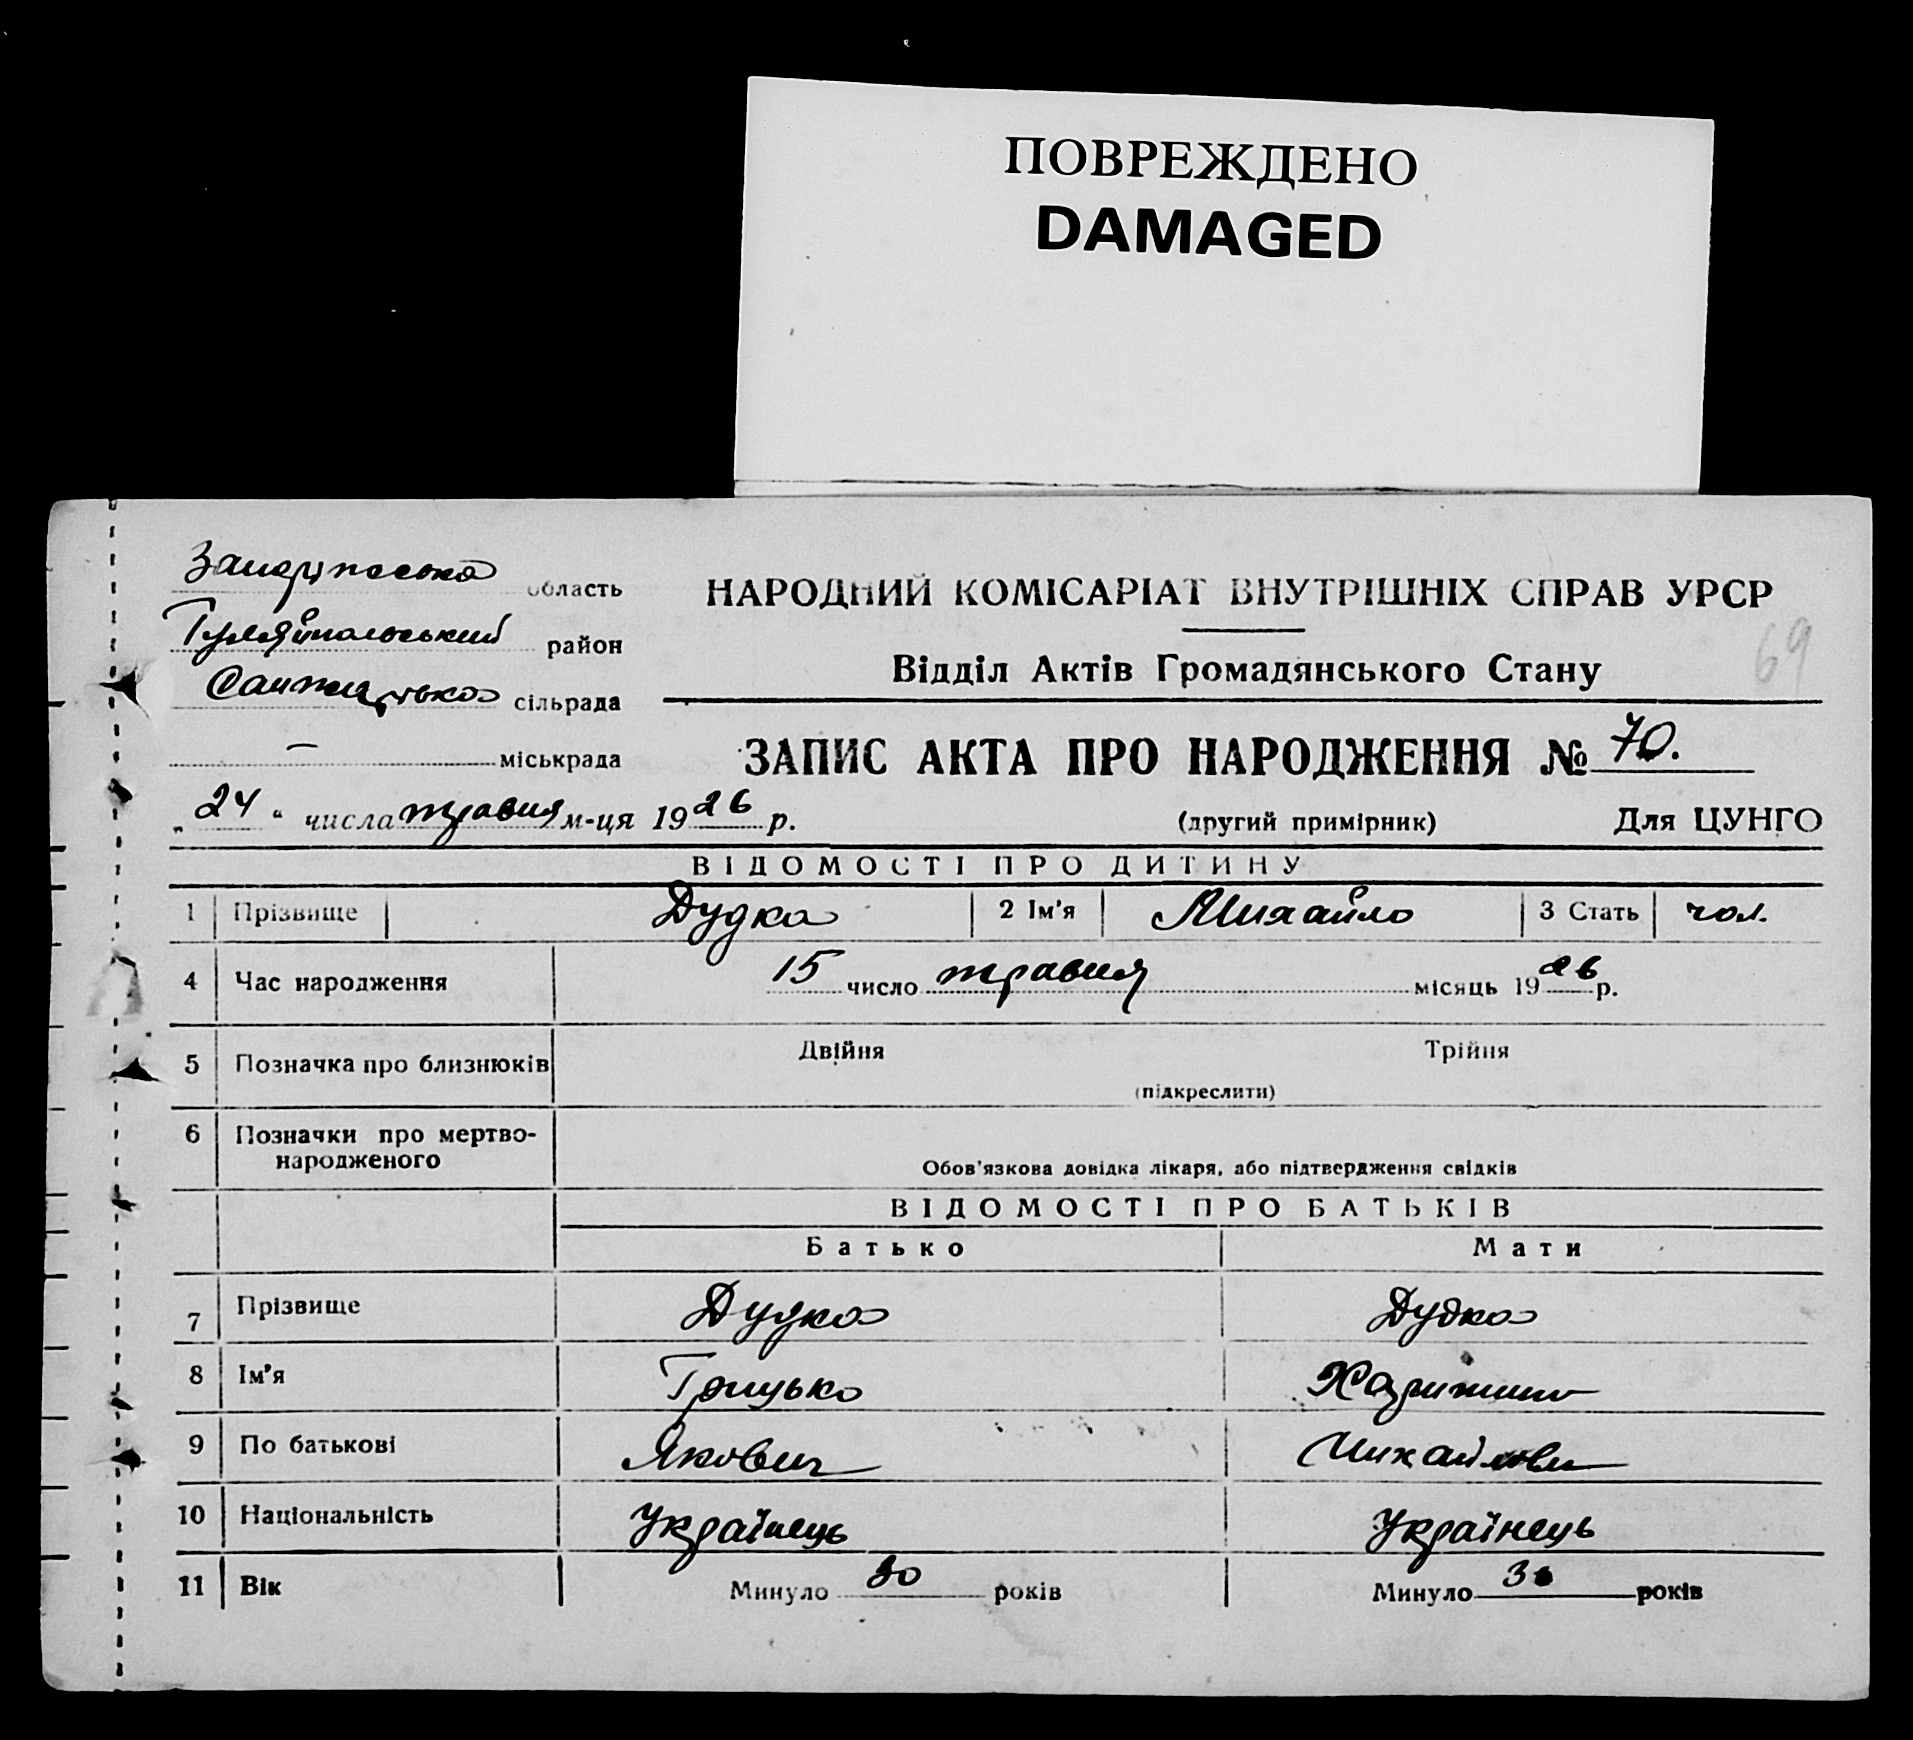 ПОВРЕЖДЕНО
DAMAGED
область
Гуляйпольський район
сільрада
— міськрада
НАРОДНИЙ КОМІСАРІАТ ВНУТРІШНІХ СПРАВ УРСР
69
Відділ Актів Громадянського Стану
ЗАПИС АКТА ПРО НАРОДЖЕННЯ № 70.
„24“ числа травня м-ця 1926 р.
(другий примірник) Для ЦУНГО
ВІДОМОСТІ ПРО ДИТИНУ
1 Прізвище Дудка 2 Ім'я Михайло 3 Стать чол.
4 Час народження 15 число травня місяць 1926 р.
5 Позначка про близнюків Двійня Трійня
(підкреслити)
6 Позначки про мертво-
народженого
Обов'язкова довідка лікаря, або підтвердження свідків
ВІДОМОСТІ ПРО БАТЬКІВ
Батько Мати
7 Прізвище Дудка Дудка
8 Ім'я Грицько
9 По батькові Якович
10 Національність Українець Українець
11 Вік Минуло 30 років Минуло років